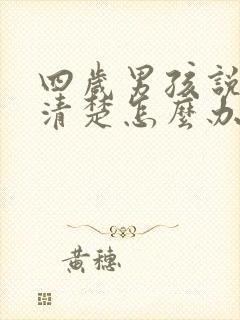 四歲男孩說
清楚怎麼办
黃穗